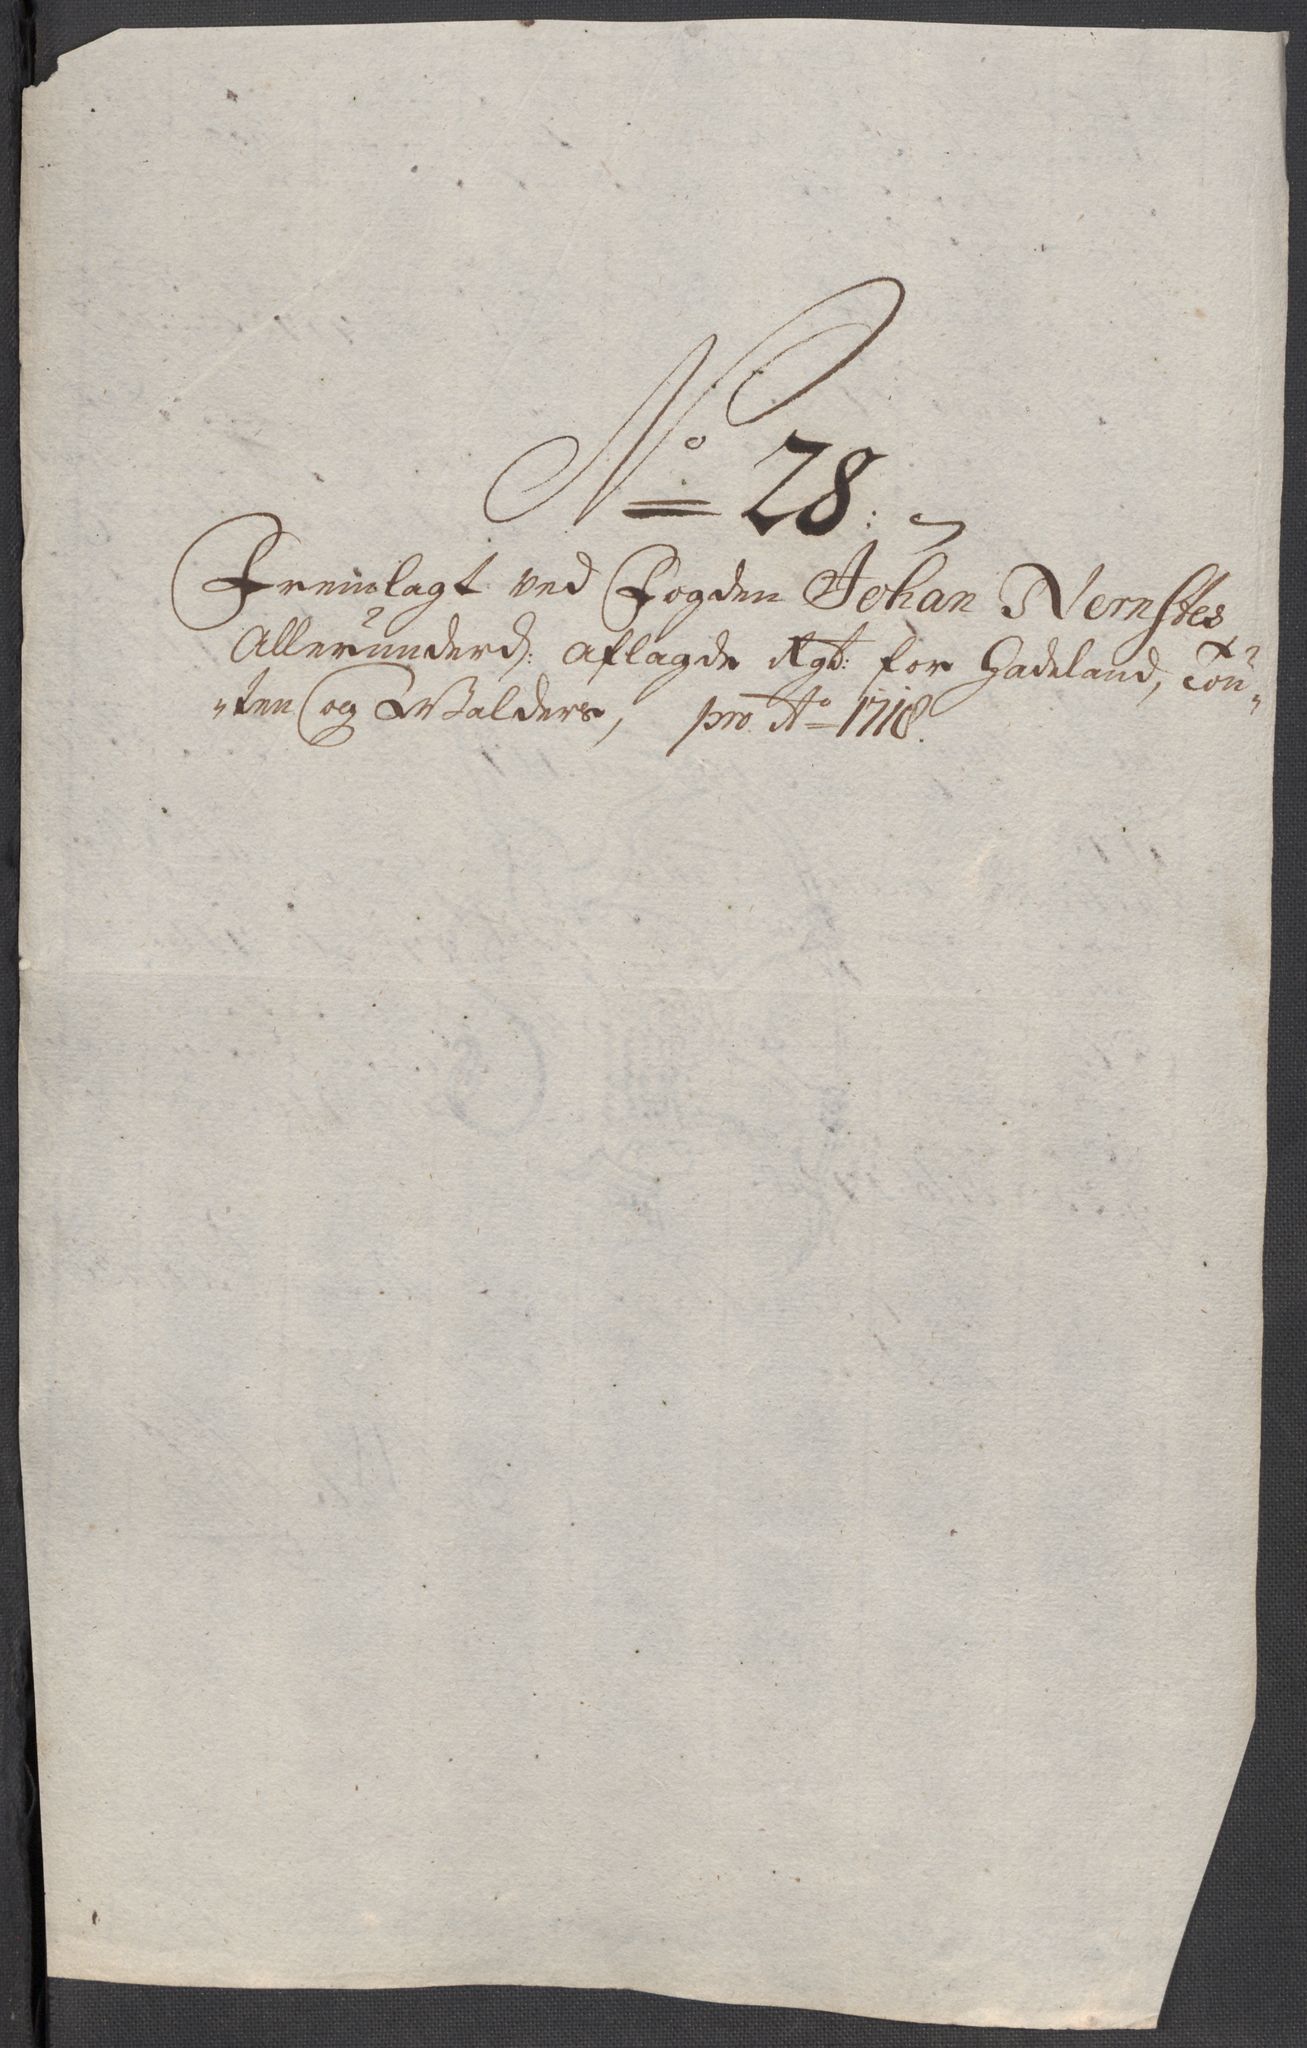 No 28:
Fremlagt ved Fogden Johan Nernstes
Allerunderd: aflagde Rgb: for Hadeland, Tou„
„ten og Walders, pro Ao 1718.